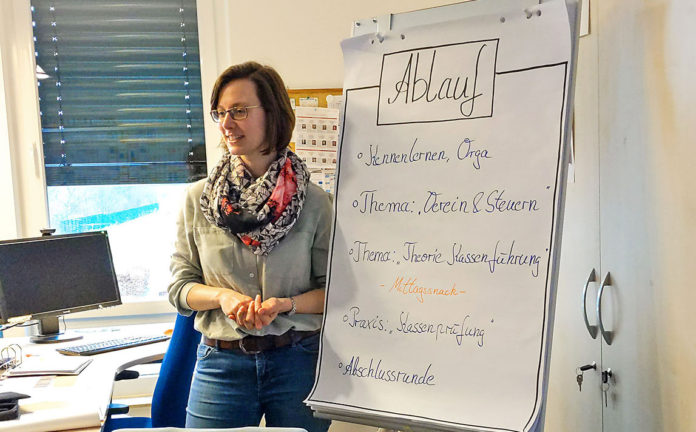 Ablauf
° Kennenlernen, Orga
° Thema: „Verein & Steuern"
° Thema: „Theorie Kassenführung"
- Mittagssnack -
° Praxis: „Kassenprüfung"
° Abschlussrunde